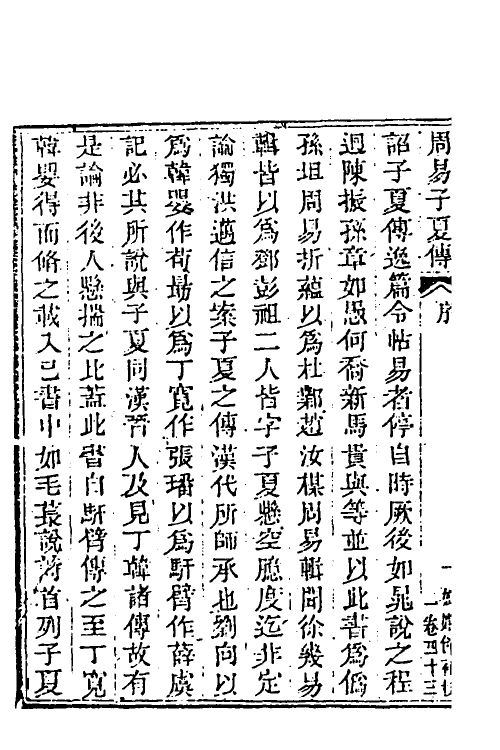 周易子夏傳 序
卷四十三
詔子夏傳逸篇令帖易者停自時厥後如晁說之程
迥陳振孫章如愚何喬新馬貴與等並以此書為僞
孫坦周易折蘊以為杜鄴趙汝楳周易輯聞徐幾易
輯皆以為鄧彭祖二人皆字子夏懸空臆度迄非定
論獨洪邁信之案子夏之傳漢代所師承也劉向以
為韓嬰作荀勗以為丁寬作張璠以為馯臂作薛虞
記必其所說與子夏同漢晉人及見丁韓諸傳故有
是論非後人懸揣之比蓋此書自馯臂傳之至丁寬
韓嬰得而脩之載入己書中如毛萇說詩首列子夏